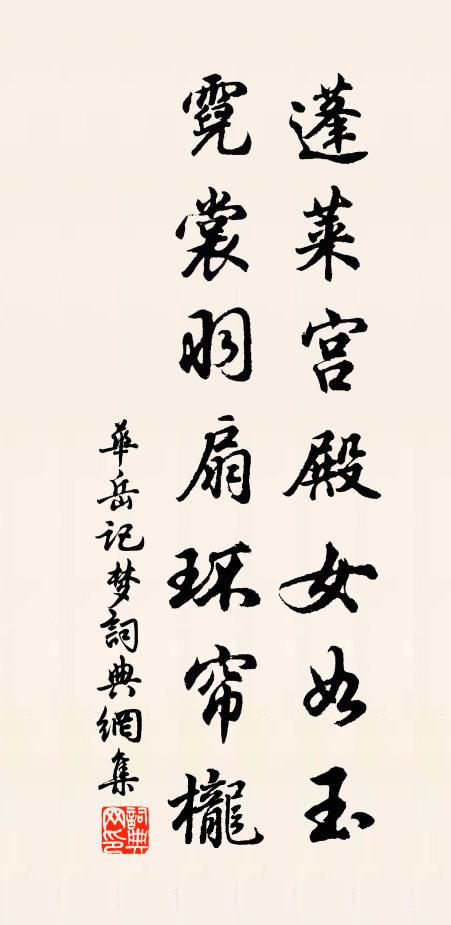 蓬莱宫殿女如玉
霓裳羽扇环帘櫳
華岳记梦詞典網集
詞典網印